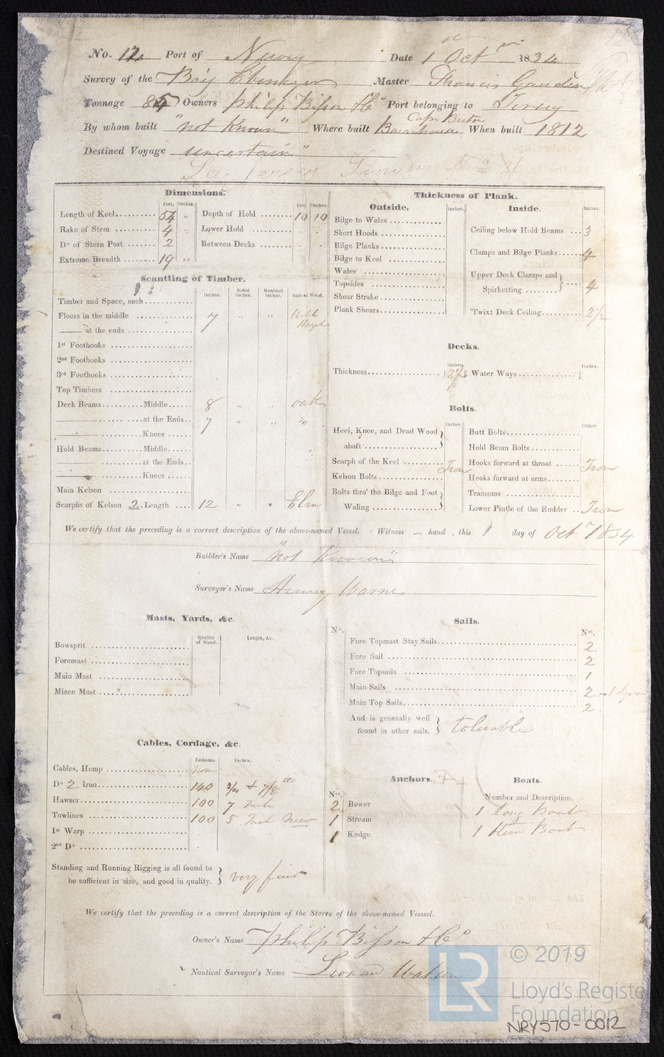 No. 12 Port of Newry Date 1st Oct 1834
Survey of the Brig Ebenezer Master Francis Gaudin
Tonnage 85 Owners Philip Bisson & Co Port belonging to Jersey
By whom built "not Known" Where built Cape Breton When built 1812
Destined Voyage "uncertain"
See Jersey
Dimensions.
Feet. Inches. Feet. Inches.
Length of Keel 54 " Depth of Hold 10 10
Rake of Stem 4 " Lower Hold
Do of Stern Post 2 Between Decks
Extreme Breadth 19 "
Scantling of Timber.
Inches. Sided Inches. Moulded Inches. Sort of Wood.
Timber and Space, each
Floors in the middle 7 " "
at the ends
1st Foothooks
2nd Foothooks
3rd Foothooks
Top Timbers
Deck Beams Middle 8 " " oak
at the Ends 7 " " "
Knees
Hold Beams Middle
at the Ends
Knees
Main Kelson
Scarphs of Kelson 2. Length 12 " " Elm
Thickness of Plank.
Outside. Inside.
Inches. Inches.
Bilge to Wales
Short Hoods
Bilge Planks
Bilge to Keel
Wales
Topsides
Shear Strake
Plank Shears
Ceiling below Hold Beams 3
Clamps and Bilge Planks 4
Upper Deck Clamps and Spirketting 4
'Twixt Deck Ceiling 2½
Decks.
Inches. Inches.
Thickness Water Ways
Bolts.
Inches Inches
Heel, Knee, and Dead Wood abaft
Scarph of the Keel Iron
Kelson Bolts
Bolts thro' the Bilge and Foot Waling
Butt Bolts
Hold Beam Bolts
Hooks forward at throat Iron
Hooks forward at arms
Transoms
Lower Pintle of the Rudder Iron
We certify that the preceding is a correct description of the above-named Vessel. Witness hand, this 1 day of Oct 1834
Builder's Name "not Known"
Surveyor's Name Henry Barns
Masts, Yards, &c.
Quality of Wood. Length, &c.
Bowsprit
Foremast
Main Mast
Mizen Mast
Sails.
No. No.
Fore Topmast Stay Sails 2
Fore Sail 2
Fore Topsails 1
Main Sails 2
Main Top Sails 2
And is generally well found in other sails. tolerable
Cables, Cordage, &c.
Fathoms. Inches.
Cables, Hemp
Do 2 Iron 140 3/4 & 7/8th
Hawser 100 7 Inch
Towlines 100 5 Inch New
1st Warp
2nd Do
Standing and Running Rigging is all found to be sufficient in size, and good in quality. very fair
Anchors. Boats.
No. Number and Description.
2 Bower 1 Long Boat
1 Stream 1 Boat
1 Kedge
We certify that the preceding is a correct description of the Stores of the above-named Vessel.
Owner's Name Philip Bisson & Co
Nautical Surveyor's Name Watson
LR © 2019
Lloyd's Register
Foundation
NRY570-0012